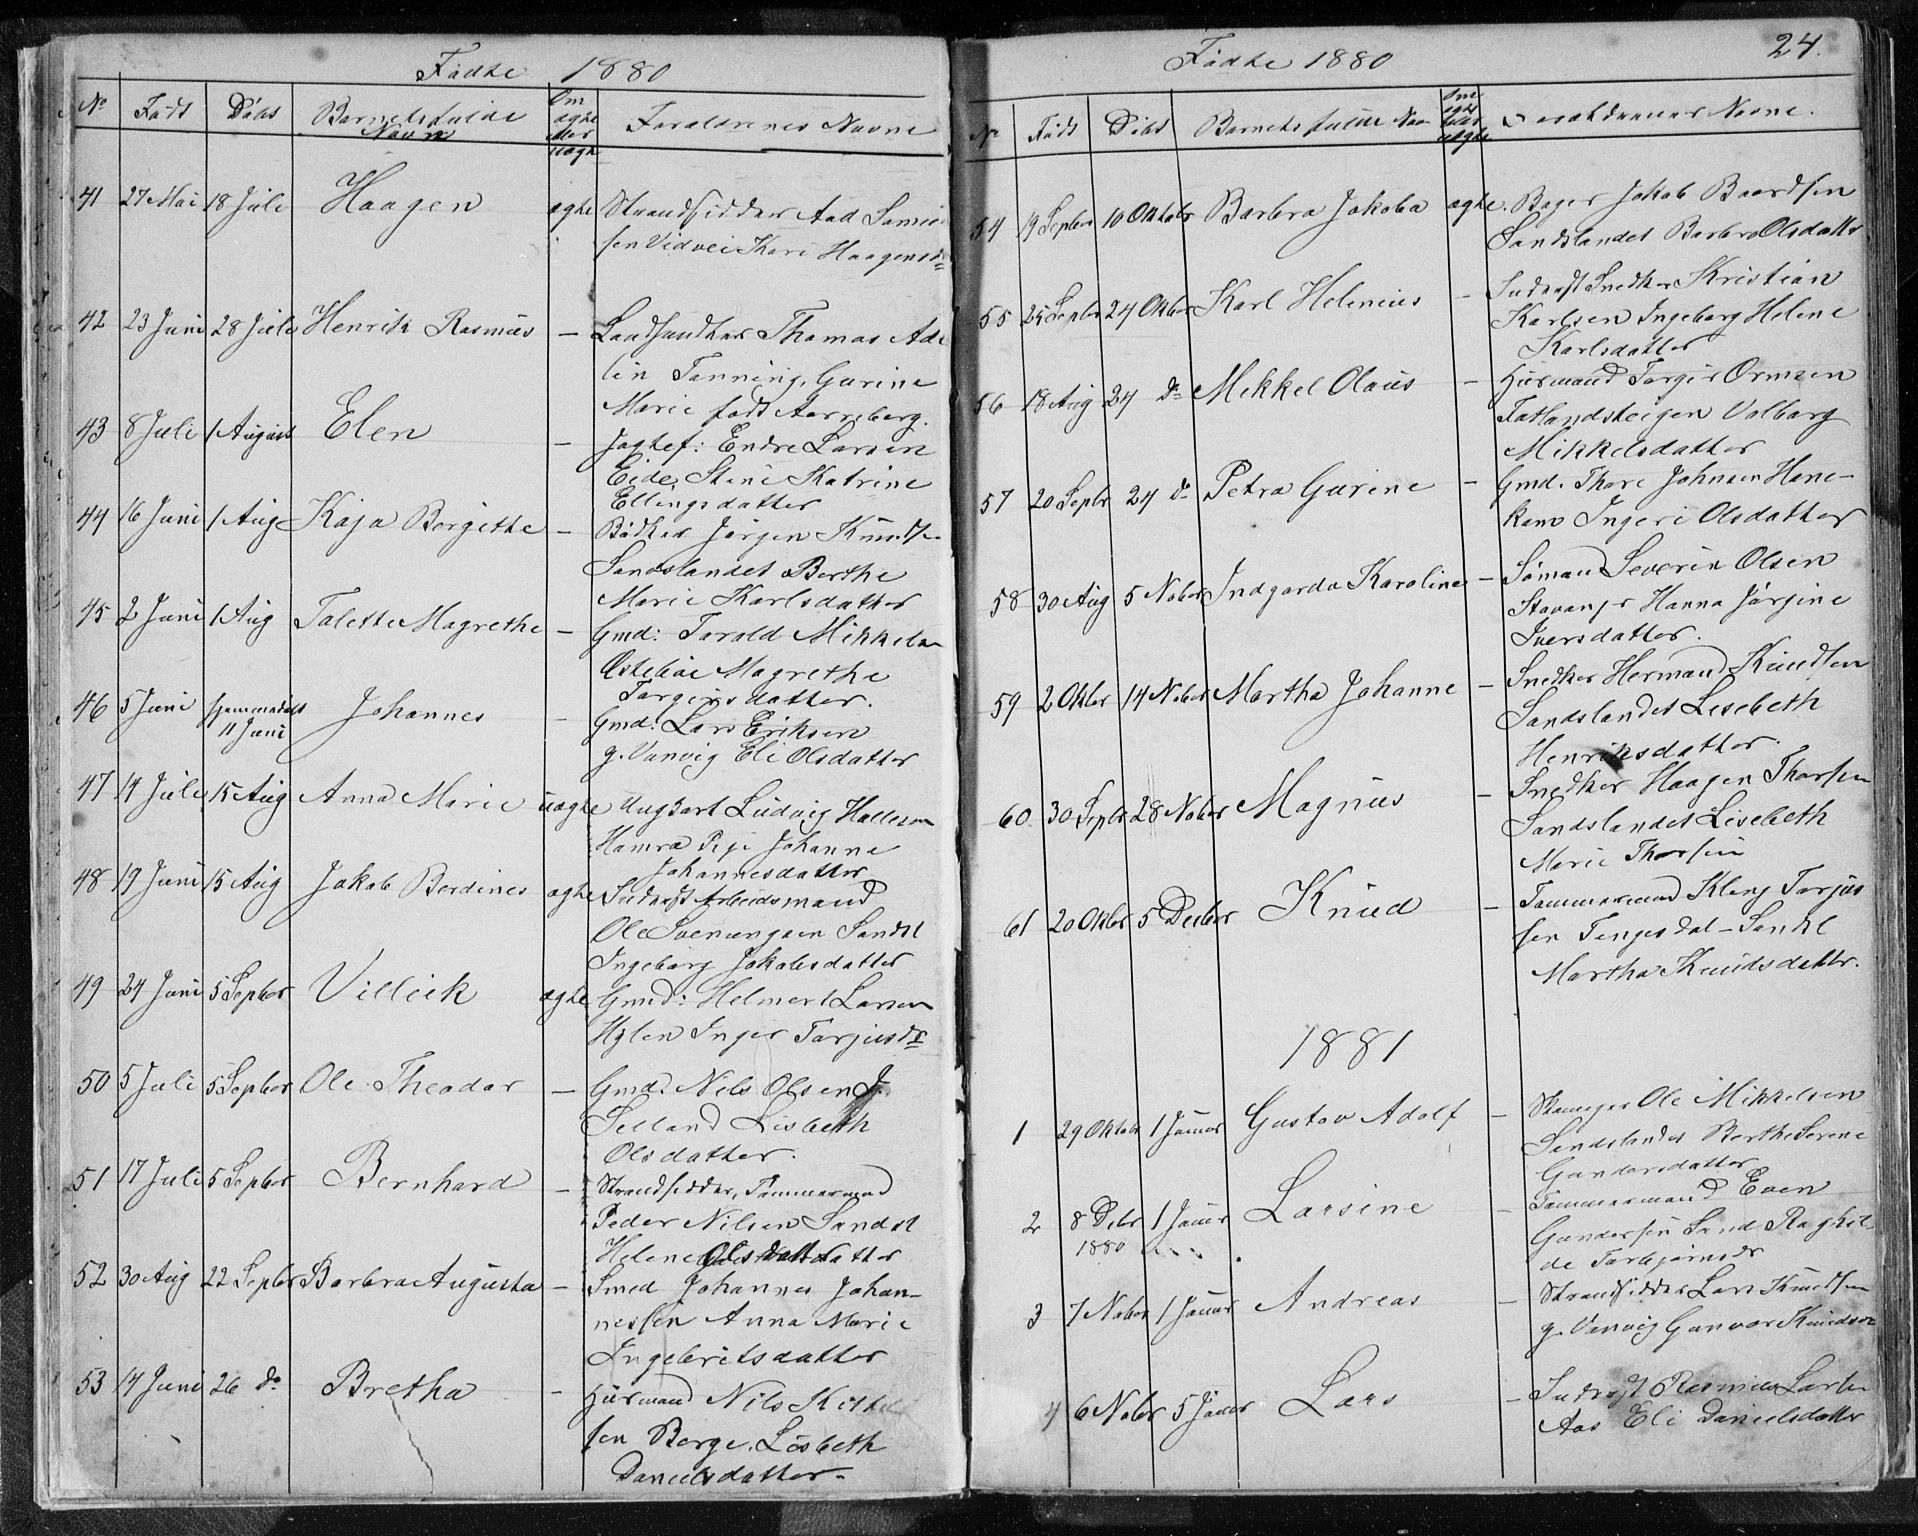 Fødte 1880
No Født Døbt Barnets fulde Navn Om ægte eller uægte Forældrenes Navne
41 27 Mai 18 Juli Haagen ægte Strandsidder Aad
sen Vidvei Kari Haagensd
42 23 Juni 28 Juli Henrik Rasmus — Landhandler Thomas Ade
lin Tanning, Gurine
Marie født
43 8 Juli 1 August Elen — Jagtef: Endre Larsen
Eide, Stine Katrine
Ellingsdatter
44 16 Juni 1 Aug Kaja Bergithe — Bødker Jørgen Knudse
Sandslandet Berthe
Marie Karlsdatter
45 2 Juni 1 Aug Talette Magrethe — Gmd: Tarald Mikkels
Østebøe Magrethe
Torgersdatter.
46 5 Juni hjemmedøbt 11 Juni Johannes — Gmd: Lars Eriksen
g. Vanvig Eli Olsdatter
47 14 Juli 15 Aug Anna Marie uægte Ungkarl Ludvig Hallesen
Hamra Pige Johanna
Johannesdatter
48 19 Juni 15 Aug Jakob Berdines ægte Inderst Arbeidsmand
Ole Svenungsen Sandsl
Ingeborg Jakobsdatter
49 24 Juni 5 Septbr Villeik ægte Gmd: Helmert Larsen
Hylen Inger Tarjusdr
50 5 Juli 5 Septbr Ole Theodor — Gmd. Nels Olsen J.
Selland Lisbeth
Olsdatter.
51 17 Juli 5 Septbr Bernhard — Strandsidder, Tømmermand
Peder Nilsen Sandsl
Helene
52 30 Aug 22 Septbr Barbra Augusta — Smed Johannes Johan-
nessen Anna Marie
Ingebritsdatter
53 14 Juni 26 do Bretha — Husmand Nils
sen Berge. Lisbeth
Danielsdatter.
Fødte 1880 24.
No Født Døbt Barnets fulde Nav Om ægte eller uægte Forældrenes Navne.
54 19 Septbr 10 Oktobr Barbra Jakoba ægte. Bager Jakob Baardsen
Sandslandet Barbro Olsdatter
55 25 Septbr 24 Oktbr Karl Helenius — Inderst Snedker Kristian
Karlsen Ingeborg Helene
Karlsdatter
56 18 Aug 24 do Mekkel Olaus — Husmand Torger Ormsen
Fatlandsteigen Valborg
Mikkelsdatter
57 20 Septbr 24 do Petra Gurine — Gmd. Thore Johnsen Hane-
kam Ingeri Olsdatter
58 30 Aug 5 Nobor Indgarda Karoline — Sømand Severin Olsen
Stavanger Hanna Jørgine
Iversdatter.
59 2 Oktbr 14 Nobor Martha Johanne — Snedker Hermand Knudsen
Sandslandet Lisebeth
Henriksdatter.
60 30 Septbr 28 Nobor Magnus — Snedker Haagen Thorsen
Sandslandet Lisebeth
Marie Thorsen
61 20 Oktbr 5 Decbr Knud — Tømmermand Kleng Tarjus
sen Tengesdal - Sandsl
Martha Knudsdatter.
1881
1 29 Oktobr 1 Januar Gustav Adolf — Ole Mikkelsen
Sandslandet Berthe Serene
Gundersdatter
2 8 Decbr 1880 1 Januar Larsine — Tømmermand Even
Gundersen Sand Raghil
de Torbjørnsdr
3 7 Nobor 1 Januar Andreas — Strandsidder Lars Knudsen
g. Vanvig Gunvor Knudsdr
4 6 Nobr 5 Januar Lars — Inderst Rasmus Larse
Aas Eli Danielsdatter